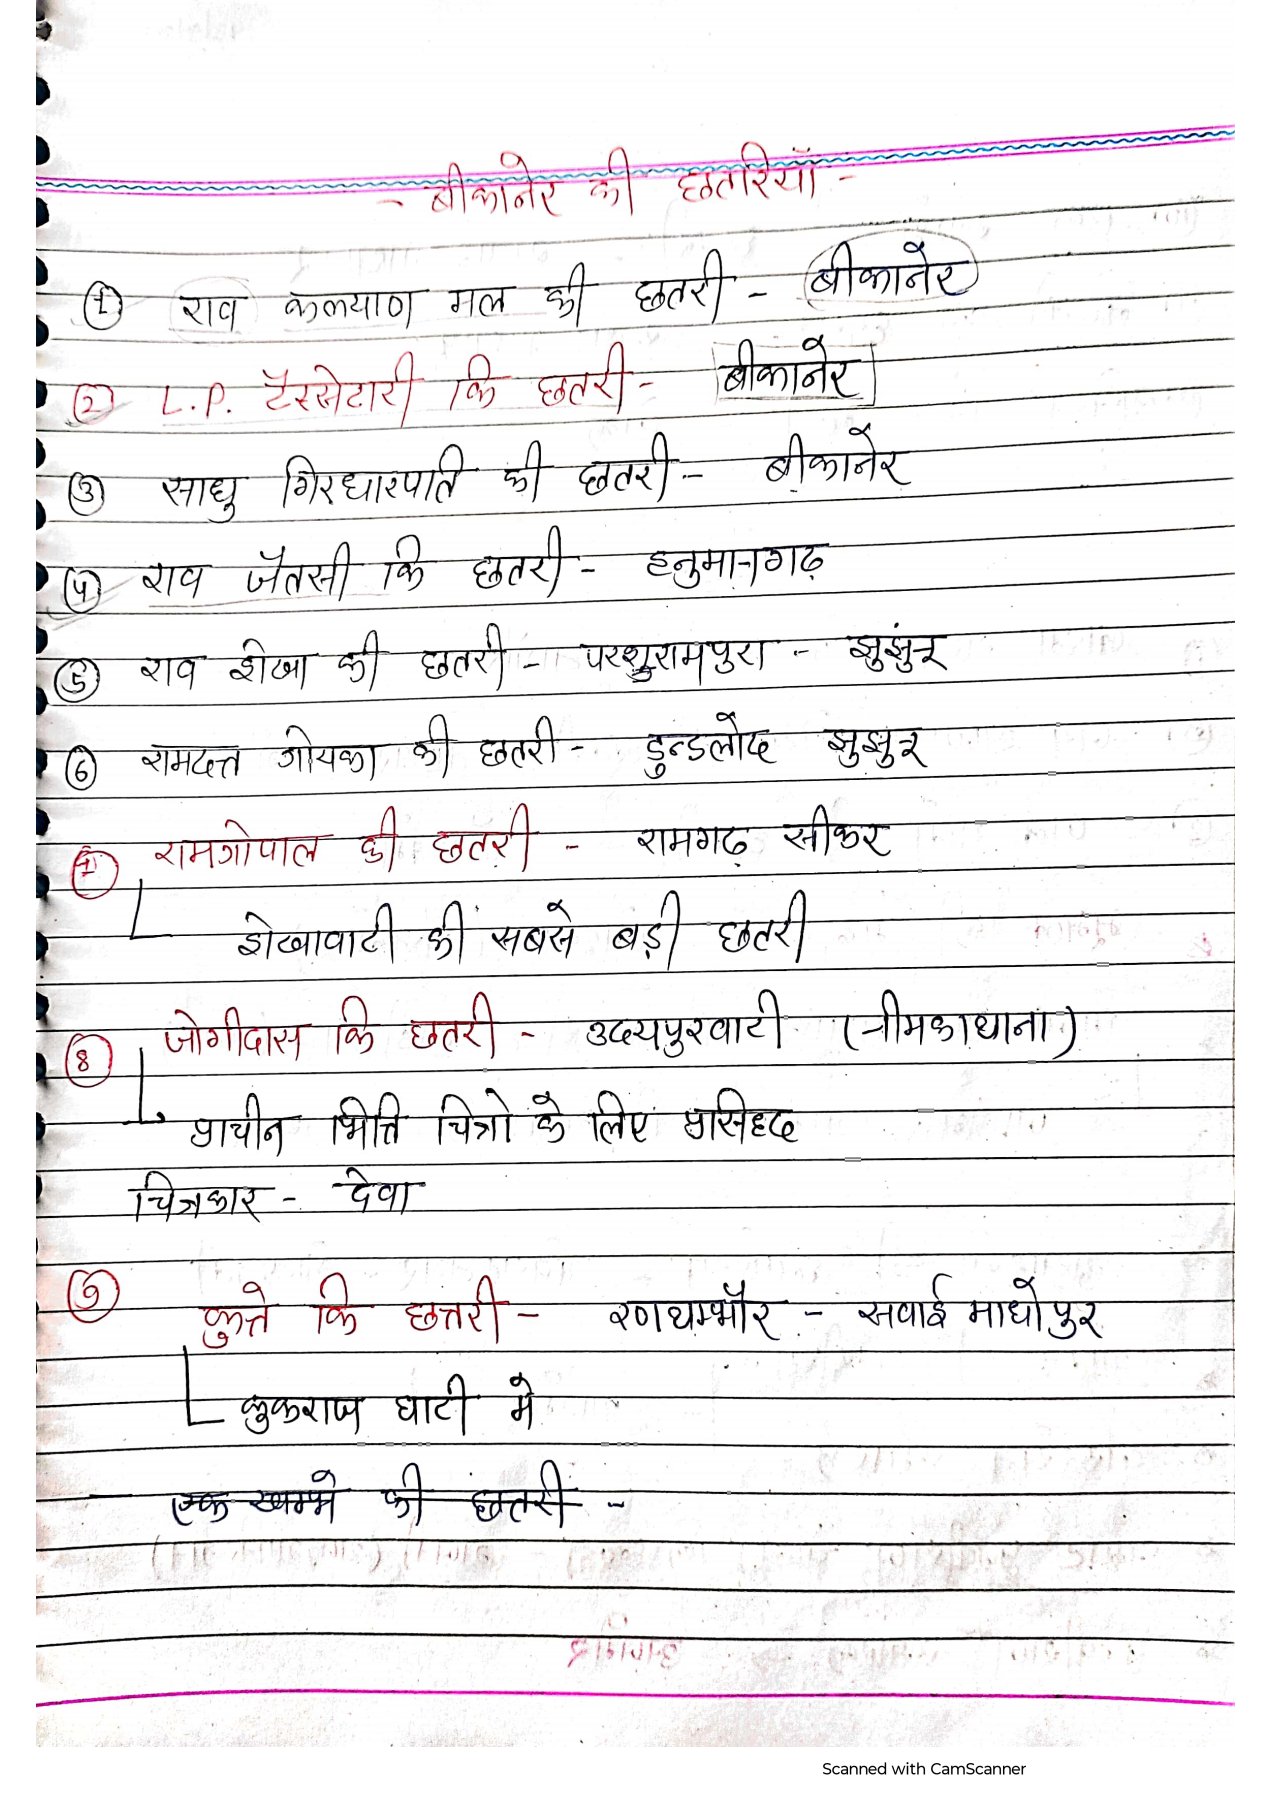 - बीकानेर की छतरियाँ -
① राव कल्याण मल की छतरी - बीकानेर
② L.P. टैस्सेटारी कि छतरी - बीकानेर
③ साधु गिरधारपति की छतरी - बीकानेर
④ राव जैतसी कि छतरी - हनुमानगढ़
⑤ राव शेखा की छतरी - परशुरामपुरा - झुझुंनू
⑥ रामदत्त गोयका की छतरी - डुन्डलोद झुझुनू
⑦ रामगोपाल की छतरी - रामगढ़ सीकर
शेखावाटी की सबसे बड़ी छतरी
⑧ जोगीदास कि छतरी - उदयपुरवाटी (नीमकाथाना)
प्राचीन भित्ति चित्रो के लिए प्रसिध्द
चित्रकार - देवा
⑨ कुत्ते कि छत्तरी - रणथम्भौर - सवाई माधोपुर
कुकराज घाटी मे
एक खम्भे की छतरी -
Scanned with CamScanner